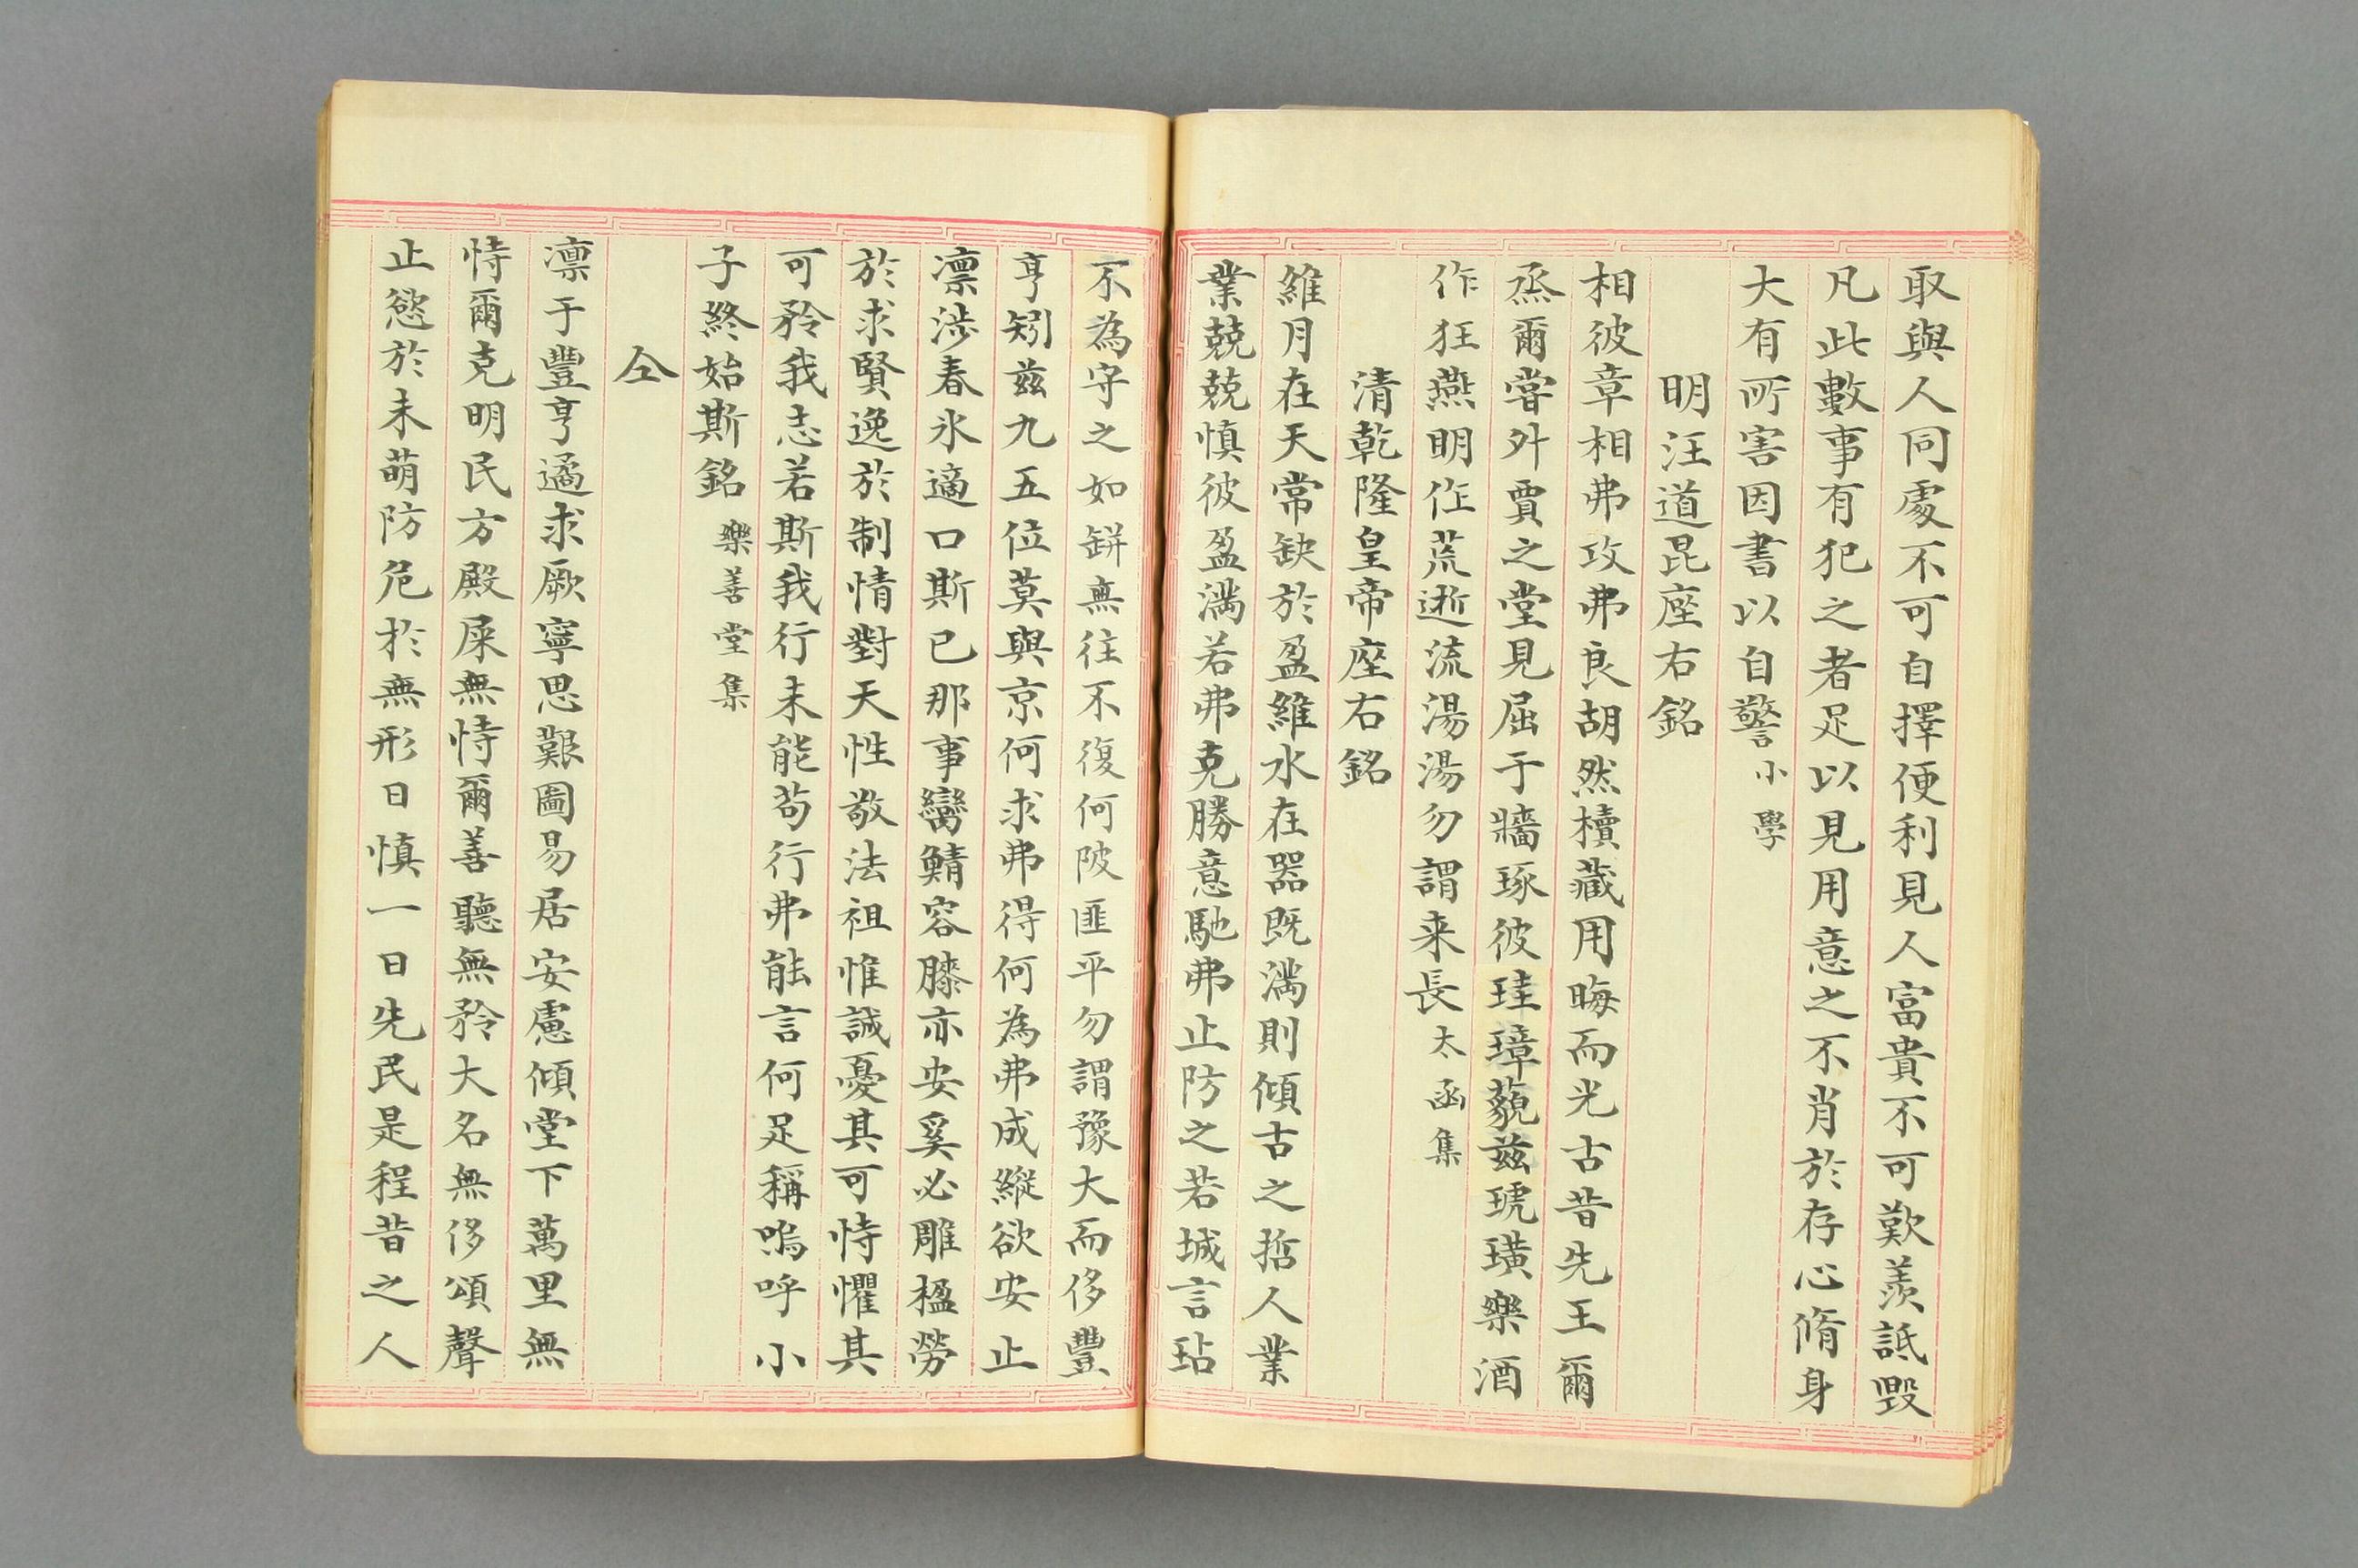 取與人同處不可自擇便利見人富貴不可歎羨詆毀
凡此數事有犯之者足以見用意之不肖於存心脩身
大有所害因書以自警小學
明汪道昆座右銘
相彼章相弗攻弗良胡然櫝藏用晦而光古昔先王爾
烝爾嘗外賈之堂見屈于牆琢彼珪璋藐茲琥璜樂酒
作狂燕明作荒逝流湯湯勿謂来長太函集
清乾隆皇帝座右銘
維月在天常缺於盈維水在器既满則傾古之哲人業
業兢兢慎彼盈满若弗克勝意馳弗止防之若城言玷
不為守之如缾無往不復何陂匪平勿謂豫大而侈豐
亨矧茲九五位莫與京何求弗得何為弗成縱欲安止
凛涉春氷適口斯已那事鸞鯖容膝亦安奚必雕楹勞
於求賢逸於制情對天性敬法祖惟誠憂其可恃懼其
可矜我志若斯我行未能苟行弗能言何足稱嗚呼小
子終始斯銘樂善堂集
仝
凛于豐亨遹求厥寧思艱圖易居安慮傾堂下萬里無
恃爾克明民方殿屎無恃爾善聽無矜大名無侈頌聲
止慾於未萌防危於無形日慎一日先民是程昔之人